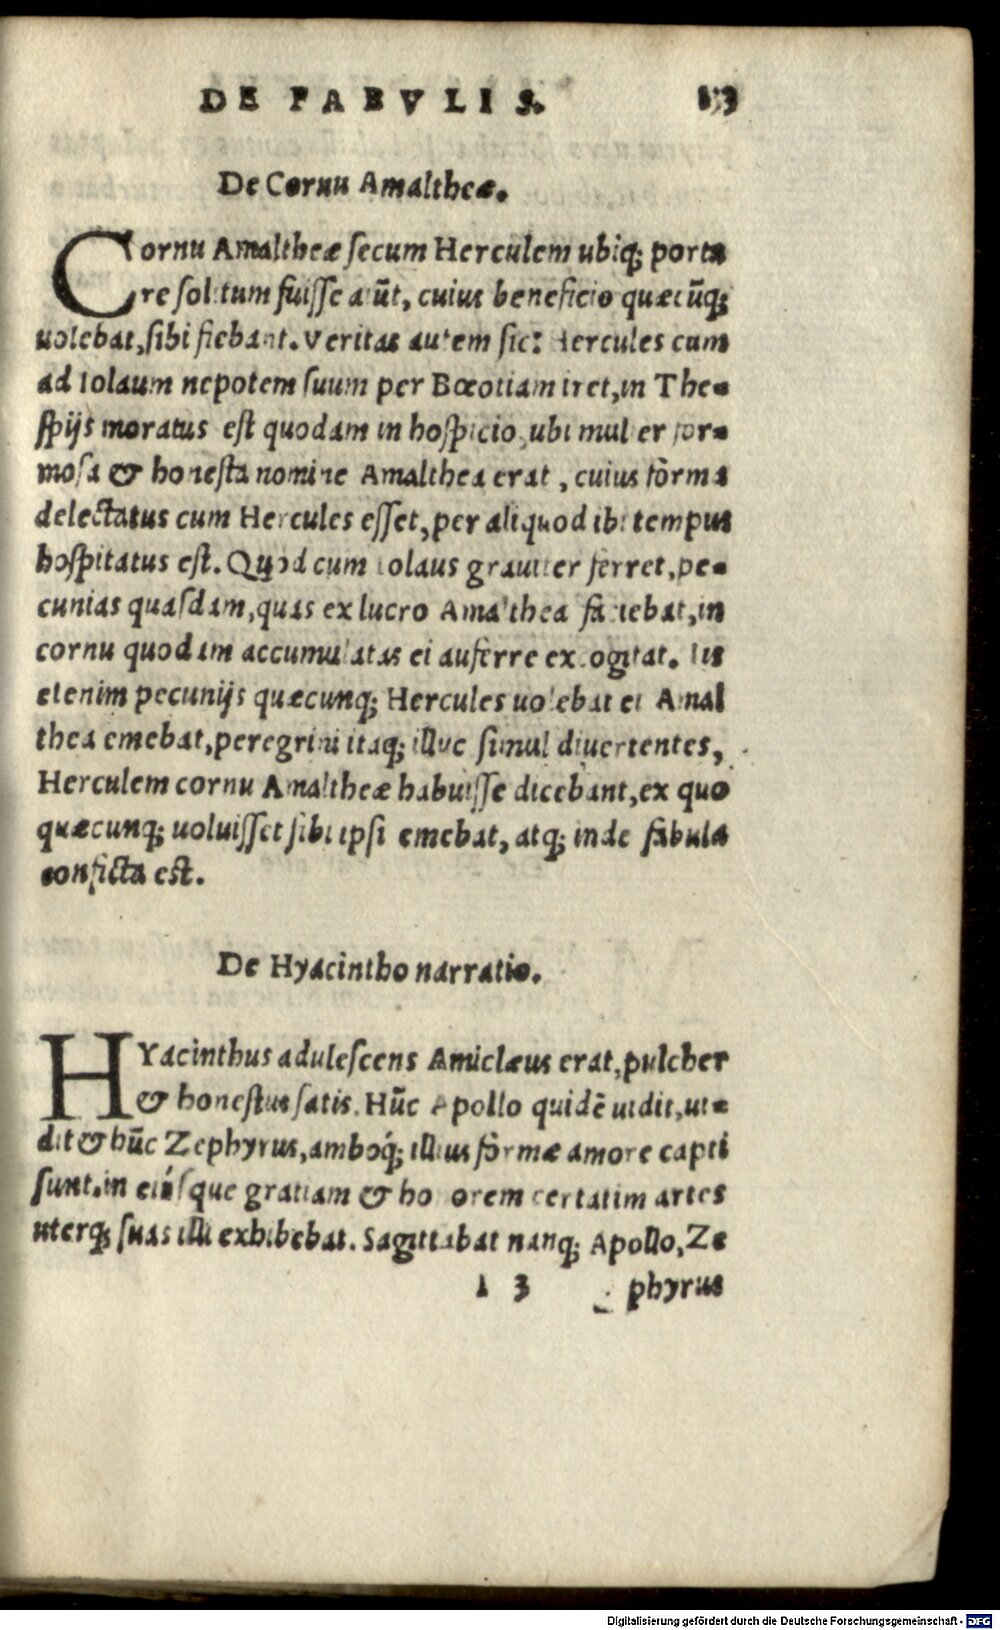 DE FABVLIS.
De Cornu Amaltheæ.
Cornu Amaltheæ secum Herculem ubiq; porta
re solitum fuisse aiũt, cuius beneficio quæcũq;
uolebat, sibi fiebant. Veritas autem sic: Hercules cum
ad Iolaum nepotem suum per Bœotiam iret, in The-
spijs moratus est quodam in hospicio, ubi mulier for-
mosa & honesta nomine Amalthea erat, cuius fòrma
delectatus cum Hercules esset, per aliquod ibi tempus
hospitatus est. Quod cum Iolaus grauiter ferret, pe-
cunias quasdam, quas ex lucro Amalthea faciebat, in
cornu quodam accumulatas ei auferre excogitat. Iis
etenim pecunijs quæcunq; Hercules uolebat ei Amal
thea emebat, peregrini itaq; illuc simul diuertentes,
Herculem cornu Amaltheæ habuisse dicebant, ex quo
quæcunq; uoluisset sibi ipsi emebat, atq; inde fabula
conficta est.
De Hyacintho narratio.
HYacinthus adulescens Amiclæus erat, pulcher
& honestus satis. Hũc Apollo quidẽ uidit, ui-
dit & hũc Zephyrus, amboq́; illius fòrmæ amore capti
sunt. in eiúsque gratiam & honorem certatim artes
uterq; suas illi exhibebat. Sagittabat nanq; Apollo, Ze
l 3 phyrus
Digitalisierung gefördert durch die Deutsche Forschungsgemeinschaft - DFG